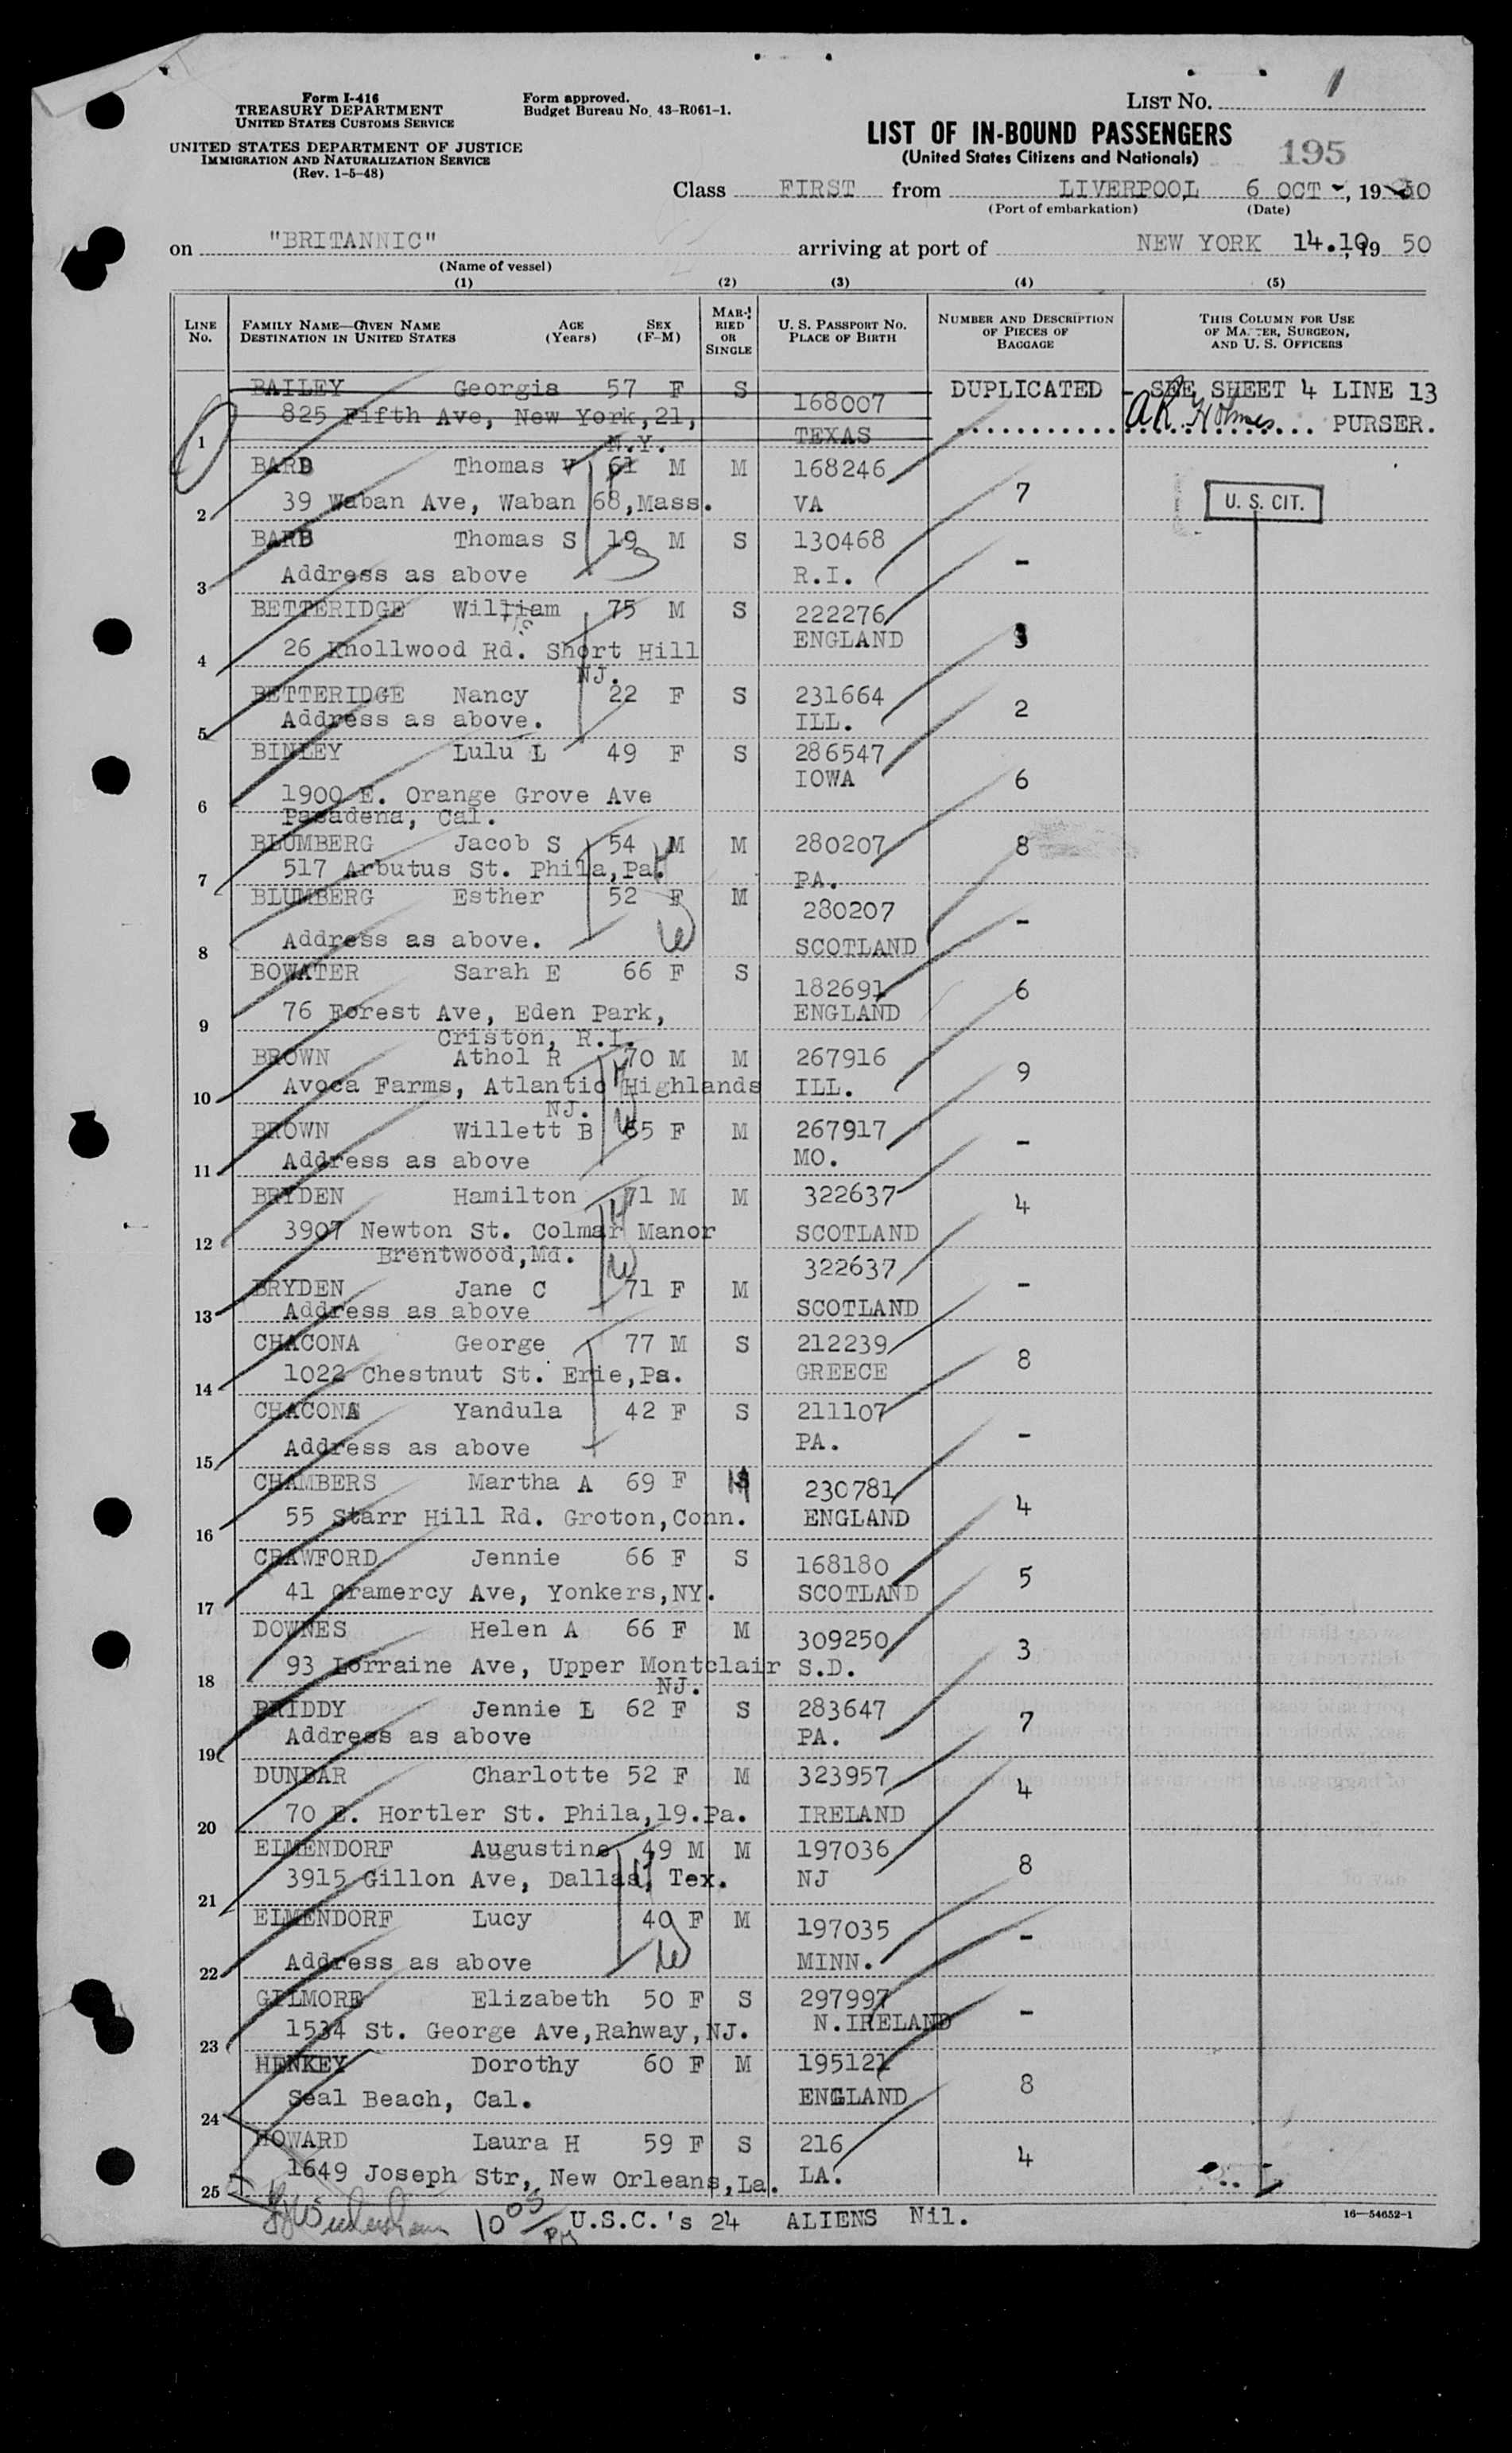 Form I-416
TREASURY DEPARTMENT
UNITED STATES CUSTOMS SERVICE
UNITED STATES DEPARTMENT OF JUSTICE
IMMIGRATION AND NATURALIZATION SERVICE
(Rev. 1-5-48)
Form approved.
Budget Bureau No. 43-R061-1.
LIST No. 1
LIST OF IN-BOUND PASSENGERS
(United States Citizens and Nationals) 195
Class FIRST from LIVERPOOL, 6 OCT, 1950
(Port of embarkation) (Date)
on "BRITANNIC" arriving at port of NEW YORK 14.10, 19 50
(Name of vessel)
(1) (2) (3) (4) (5)
LINE No. FAMILY NAME—GIVEN NAME DESTINATION IN UNITED STATES AGE (Years) SEX (F-M) MARRIED OR SINGLE U. S. PASSPORT NO. PLACE OF BIRTH NUMBER AND DESCRIPTION OF PIECES OF BAGGAGE THIS COLUMN FOR USE OF MASTER, SURGEON, AND U. S. OFFICERS
BAILEY Georgia 57 F S 168007 DUPLICATED - SEE SHEET 4 LINE 13
1 825 Fifth Ave, New York,21, N.Y. TEXAS A R Holmes PURSER.
BARB Thomas V 61 M M 168246 7 U. S. CIT.
2 39 Waban Ave, Waban 68,Mass. VA
BARB Thomas S 19 M S 130468 -
3 Address as above R.I.
BETTERIDGE William 75 M S 222276 3
4 26 Knollwood Rd. Short Hill NJ. ENGLAND
BETTERIDGE Nancy 22 F S 231664 2
5 Address as above. ILL.
BINLEY Lulu L 49 F S 286547 6
6 1900 E. Orange Grove Ave IOWA
Pasadena, Cal.
BLUMBERG Jacob S 54 M M 280207 8
7 517 Arbutus St. Phila,Pa. PA.
BLUMBERG Esther 52 F M 280207 -
8 Address as above. SCOTLAND
BOWATER Sarah E 66 F S 182691 6
9 76 Forest Ave, Eden Park, ENGLAND
Criston, R.I.
BROWN Athol R 70 M M 267916 9
10 Avoca Farms, Atlantic Highlands NJ. ILL.
BROWN Willett B 65 F M 267917 -
11 Address as above MO.
BRYDEN Hamilton 71 M M 322637 4
12 3907 Newton St. Colmar Manor SCOTLAND
Brentwood,Md.
BRYDEN Jane C 71 F M 322637 -
13 Address as above SCOTLAND
CHACONA George 77 M S 212239 8
14 1022 Chestnut St. Erie,Pa. GREECE
CHACONA Yandula 42 F S 211107 -
15 Address as above PA.
CHAMBERS Martha A 69 F M 230781 4
16 55 Starr Hill Rd. Groton,Conn. ENGLAND
CRAWFORD Jennie 66 F S 168180 5
17 41 Gramercy Ave, Yonkers,NY. SCOTLAND
DOWNES Helen A 66 F M 309250 3
18 93 Lorraine Ave, Upper Montclair NJ. S.D.
PRIDDY Jennie L 62 F S 283647 7
19 Address as above PA.
DUNBAR Charlotte 52 F M 323957 4
20 70 E. Hortler St. Phila,19.Pa. IRELAND
ELMENDORF Augustine 49 M M 197036 8
21 3915 Gillon Ave, Dallas, Tex. NJ
ELMENDORF Lucy 49 F M 197035 -
22 Address as above MINN.
GILMORE Elizabeth 50 F S 297997 -
23 1534 St. George Ave,Rahway,NJ. N.IRELAND
HENKEY Dorothy 60 F M 195121 8
24 Seal Beach, Cal. ENGLAND
HOWARD Laura H 59 F S 216 4
25 1649 Joseph Str, New Orleans,La. LA.
10 05 PM U.S.C.'s 24 ALIENS Nil.
16—54652-1